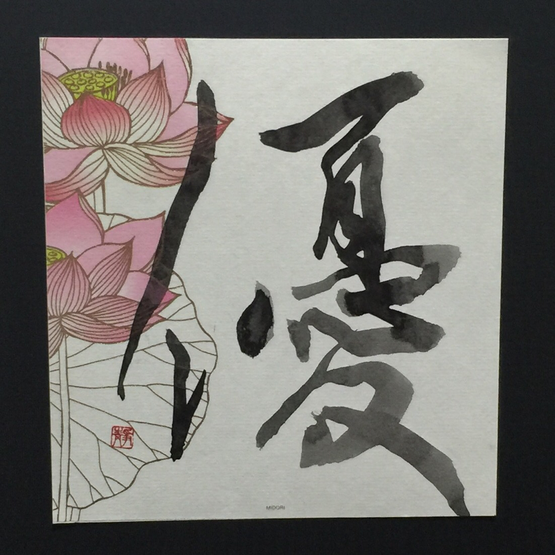 優
MIDORI